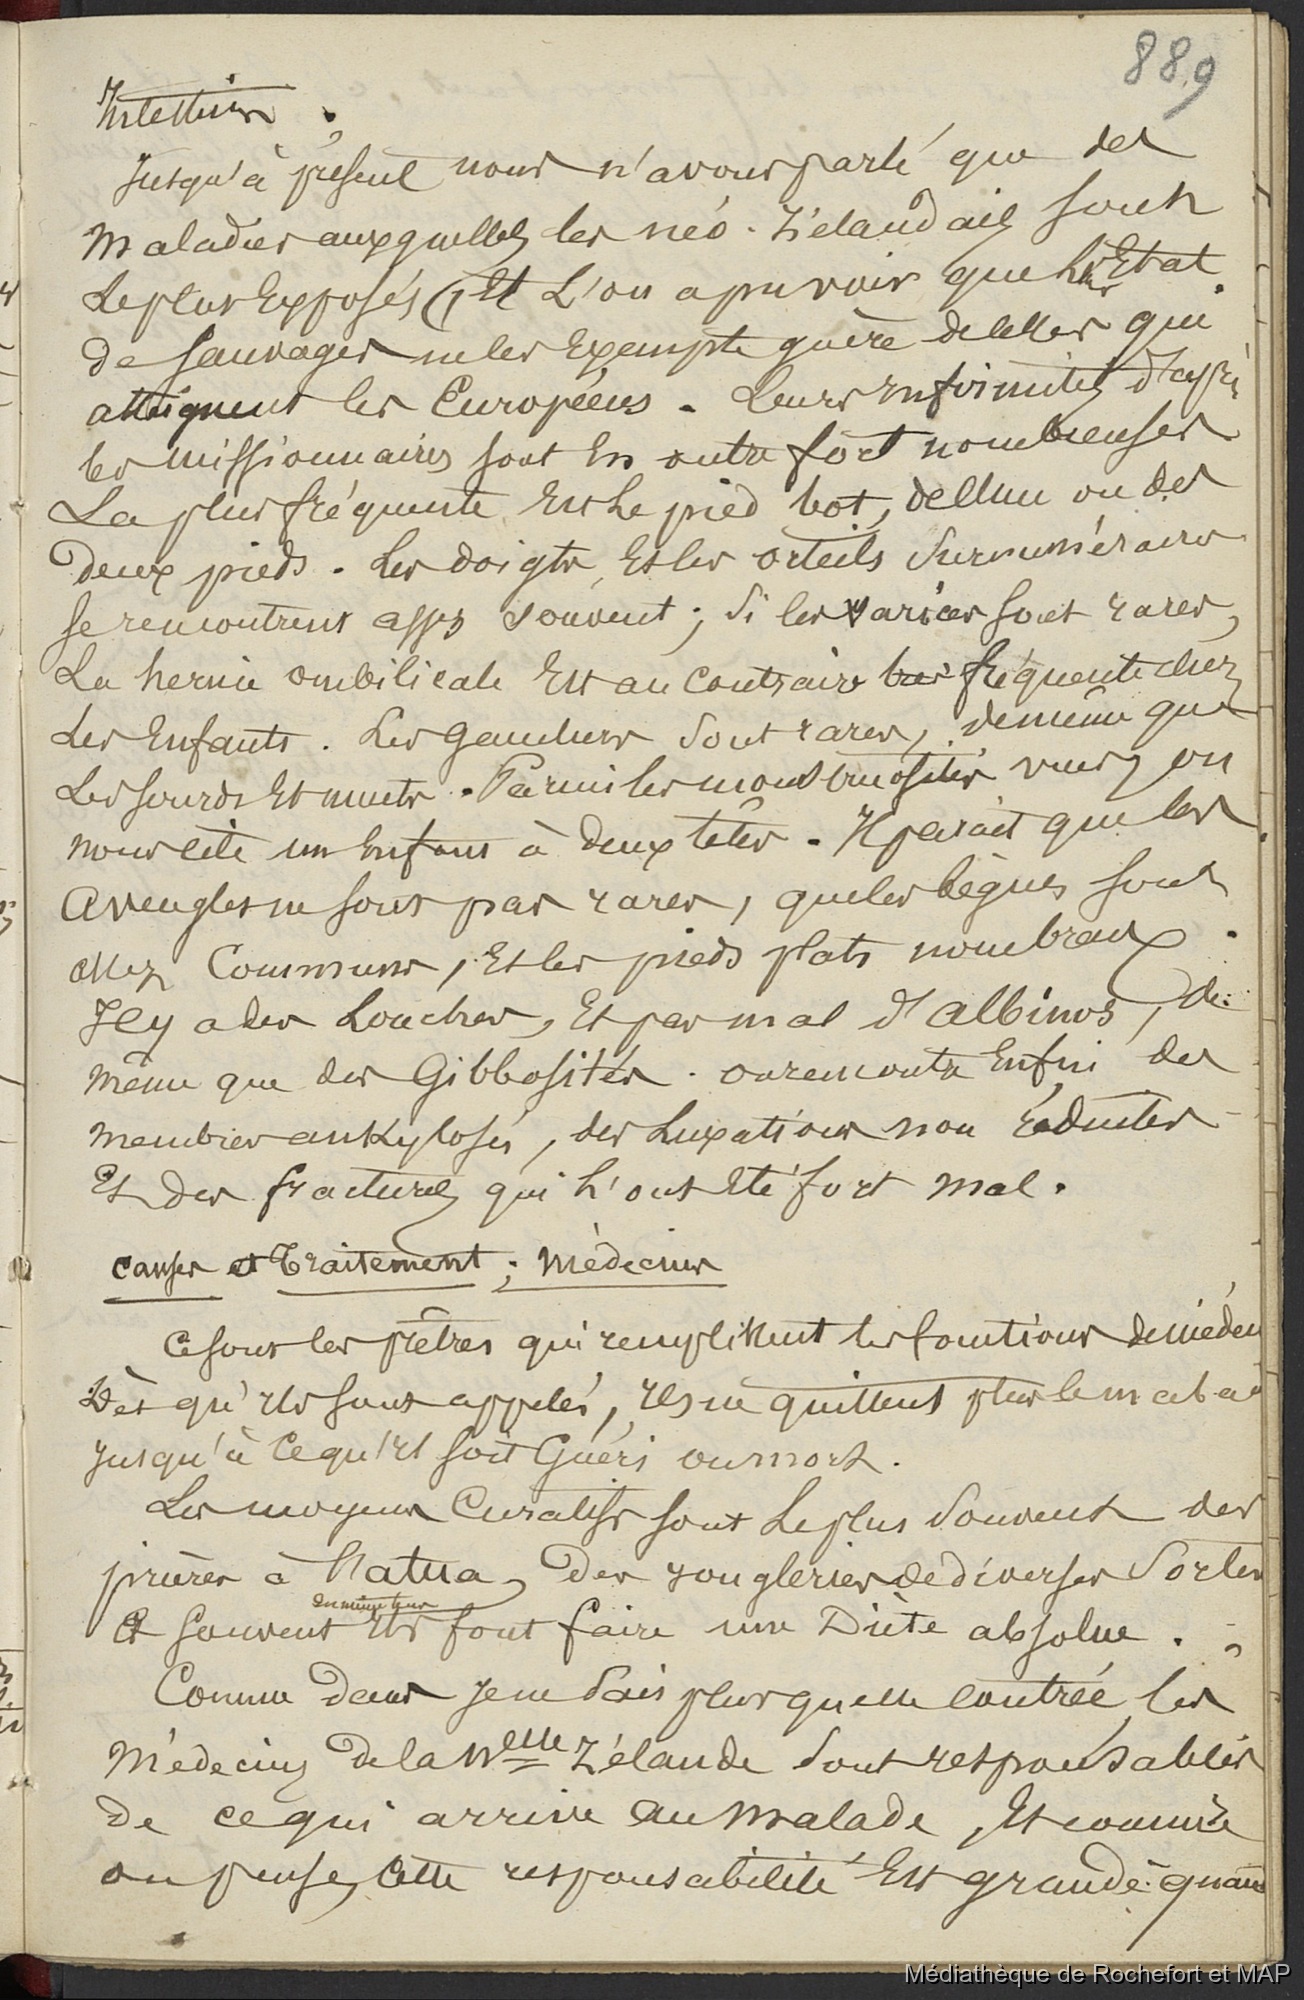 889
Intestins.
Jusqu'à présent nous n'avons parlé que des
Maladies auxquelles les néo-Zélandais sont
Le plus Exposés, Et L'on a pu voir que l'Etat
de Sauvages ne les Exempte guère de celles qui
atteignent les Européens. Leurs infirmités d'après
les missionnaires sont En outre fort nombreuses
La plus fréquente Est le pied bot, de l'un ou des
Deux pieds. Les doigts Et les orteils Surnuméraires
se rencontrent assez souvent; Si les varices sont rares,
La hernie ombilicale Est au Contraire très fréquente chez
Les Enfants. Les Gauchers Sont rares, de même que
Les Sourds Et muets. Parmi les monstruosités vues, on
nous cite un Enfant à deux têtes. Il paraît que les
Aveugles ne sont pas rares, que les bègues sont
assez Communs, Et les pieds plats nombreux.
Il y a des Louches, Et pas mal d'albinos, de
même que des Gibbosités. on rencontre Enfin des
membres ankylosés, des Luxations non réduites
Et des fractures qui l'ont Eté fort mal.
causes et Traitement; Médecins
Ce sont les prêtres qui remplissent les fonctions de médecin
Dès qu'ils sont appelés, ils ne quittent plus le malade
jusqu'à ce qu'il soit Guéri ou mort.
Les moyens Curatifs sont Le plus Souvent des
prières à l'Atua, Des jongleries de diverses Sortes
Et Souvent Ils font faire une Diète absolue.
Comme dans je ne Sais plus quelle contrée, les
Médecins De la Nelle Zélande Sont responsables
De ce qui arrive au Malade, Et comme
on pense, cette responsabilité Est grande quand
Médiathèque de Rochefort et MAP